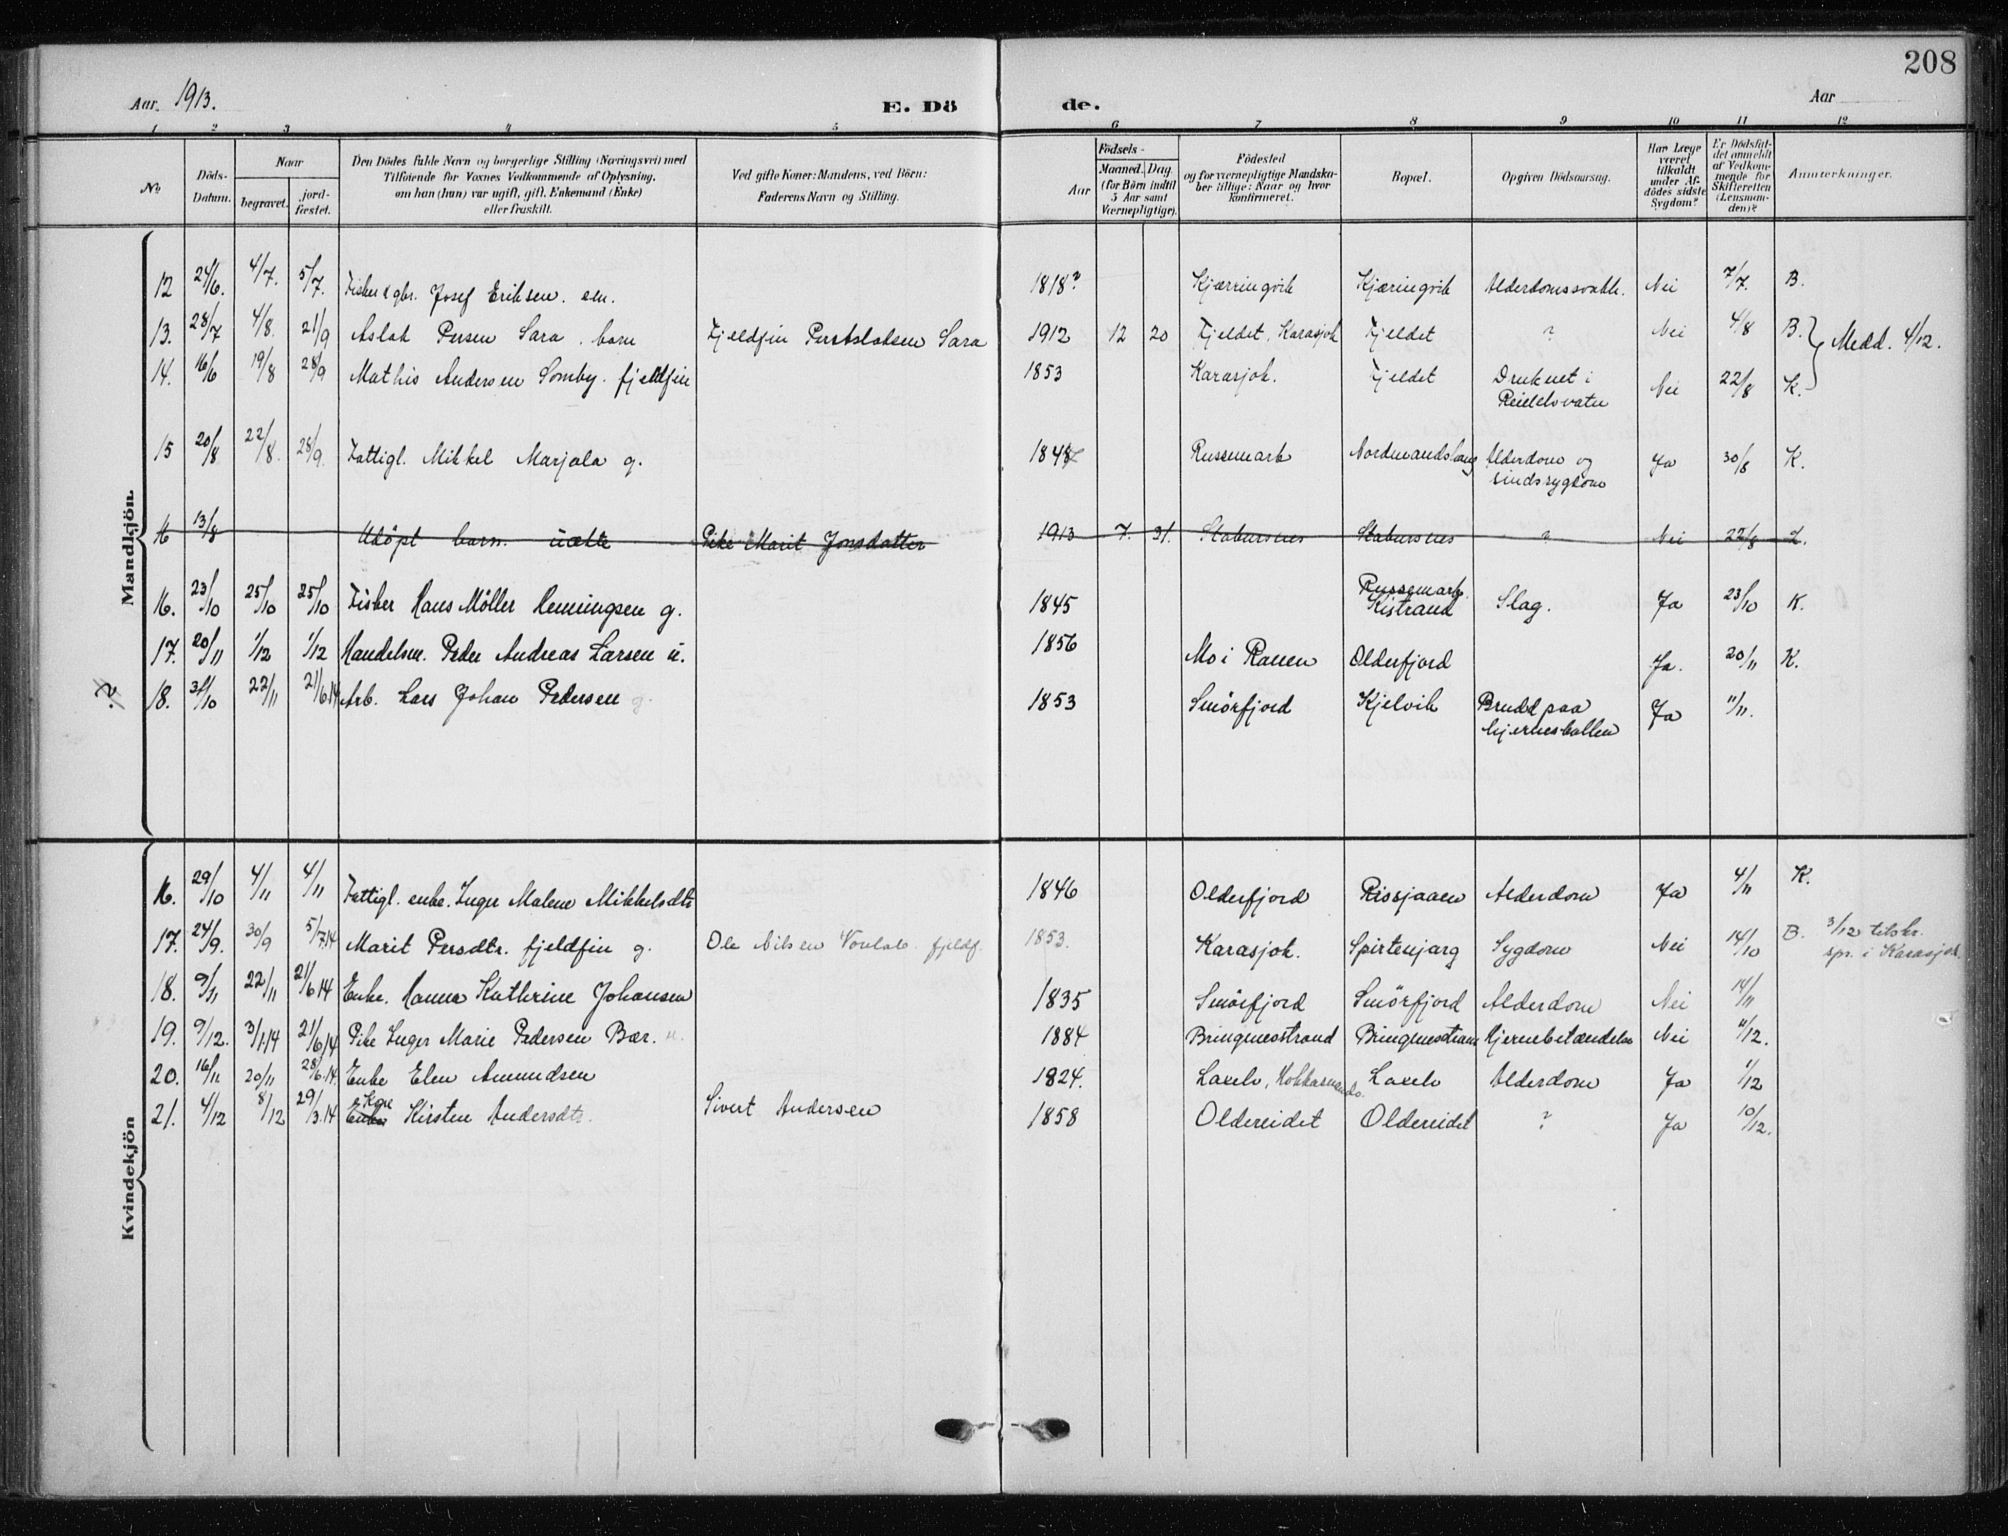 208
Aar 1913.
E. Döde.
Aar
1 2 3 4 5 6 7 8 9 10 11 12
No.
Döds-Datum.
Naar
begravet.
jord-fæstet.
Den Dödes fulde Navn og borgerlige Stilling (Næringsvei) med
Tilföiende for Voxnes Vedkommende af Oplysning,
om han (hun) var ugift, gift, Enkemand (Enke)
eller fraskilt.
Ved gifte Koner: Mandens, ved Börn:
Faderens Navn og Stilling.
Födsels-
Aar
Maaned. Dag.
(for Börn indtil
5 Aar samt
Værnepligtige).
Födested
og for værnepligtige Mandska-
ber tillige: Naar og hvor
konfirmeret.
Bopæl.
Opgiven Dödsaarsag.
Har Læge
været
tilkaldt
under Af-
dödes sidste
Sygdom?
Er Dödsfal-
det anmeldt
af Vedkom-
mende for
Skifteretten
(Lensman-
den)?
Anmærkninger.
Mandkjön.
12 24/6. 4/7. 5/7. Fisker & gbr. Josef Eriksen. em. 1818? Kjærringvik Kjæringvik Alderdomssvakh. Nei 7/7. B.
13. 28/7 4/8. 21/9 Aslak Persen Sara. barn Fjeldfin Per Aslaksen Sara 1912 12 20 Fjeldet, Karasjok Fjeldet ? Nei 4/8 B. } Medd. 4/12.
14. 16/6 19/8 28/9 Mathis Andersen Somby. fjeldfin 1853 Karasjok. Fjeldet Druknet i Nei 22/8 K.
15 20/8 22/8. 28/9. Fattigl. Mikkel Marjala g. 184 Russemark Alderdom og sindssygdom Ja 30/8 K.
16 13/8 Udöpt barn. uækte Pike Marit Jonsdatter 1913 7. 31. Stabursnes Stabursnes ? Nei 22/8 L.
16. 23/10 25/10 25/10 Fisker Hans Möller Henningsen g. 1845 Russemark. Kistrand Slag. Ja 23/10 K.
17. 20/11 1/12 1/12 Handelsm. Peder Andreas Larsen u. 1856 Mo i Ranen Olderfjord Ja. 20/11 K.
18. 31/10 22/11 21/6.14 Arb. Lars Johan Pedersen g. 1853 Smörfjord Kjelvik Brudd paa hjerneskallen Ja 11/11.
Kvindekjön
16. 29/10 4/11 4/11 Fattigl. enke. Inger Malene Mikkelsdtr 1846 Olderfjord Alderdom Ja 4/11 K.
17. 24/9. 30/9 5/7.14 Marit Persdtr. fjeldfin g. Ole Nilsen fjeldf. 1853. Karasjok. Spirtenjarg Sygdom Nei 14/10 B. 3/12 tilskr. spr. i Karasjok.
18. 9/11 22/11 21/6.14 Enke. Hanna Kathrine Johansen 1835 Smörfjord Smörfjord Alderdom Nei 14/11
19. 9/12. 3/1.14 21/6.14 Pike Inger Marie Pedersen Bær. u. 1884 Bringnesstrand Bringnesstrand Hjernebetændelse Nei 11/12.
20. 16/11 20/11 28/6.14. Enke Elen Amundsen 1824. Laxelv, Laxelv Alderdom Ja 1/12
21. 4/12 8/12 29/3.14 Enke Kone Kirsten Andersdtr. Sivert Andersen 1858 Oldereidet Oldereidet ? Ja 10/12.